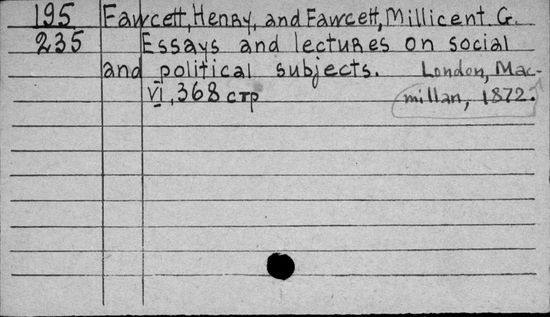 195 Fawcett, Henry, and Fawcett, Millicent G.
235 Essays and lectures on social
and political subjects. London, Mac-
VI, 368 стр millan, 1872.